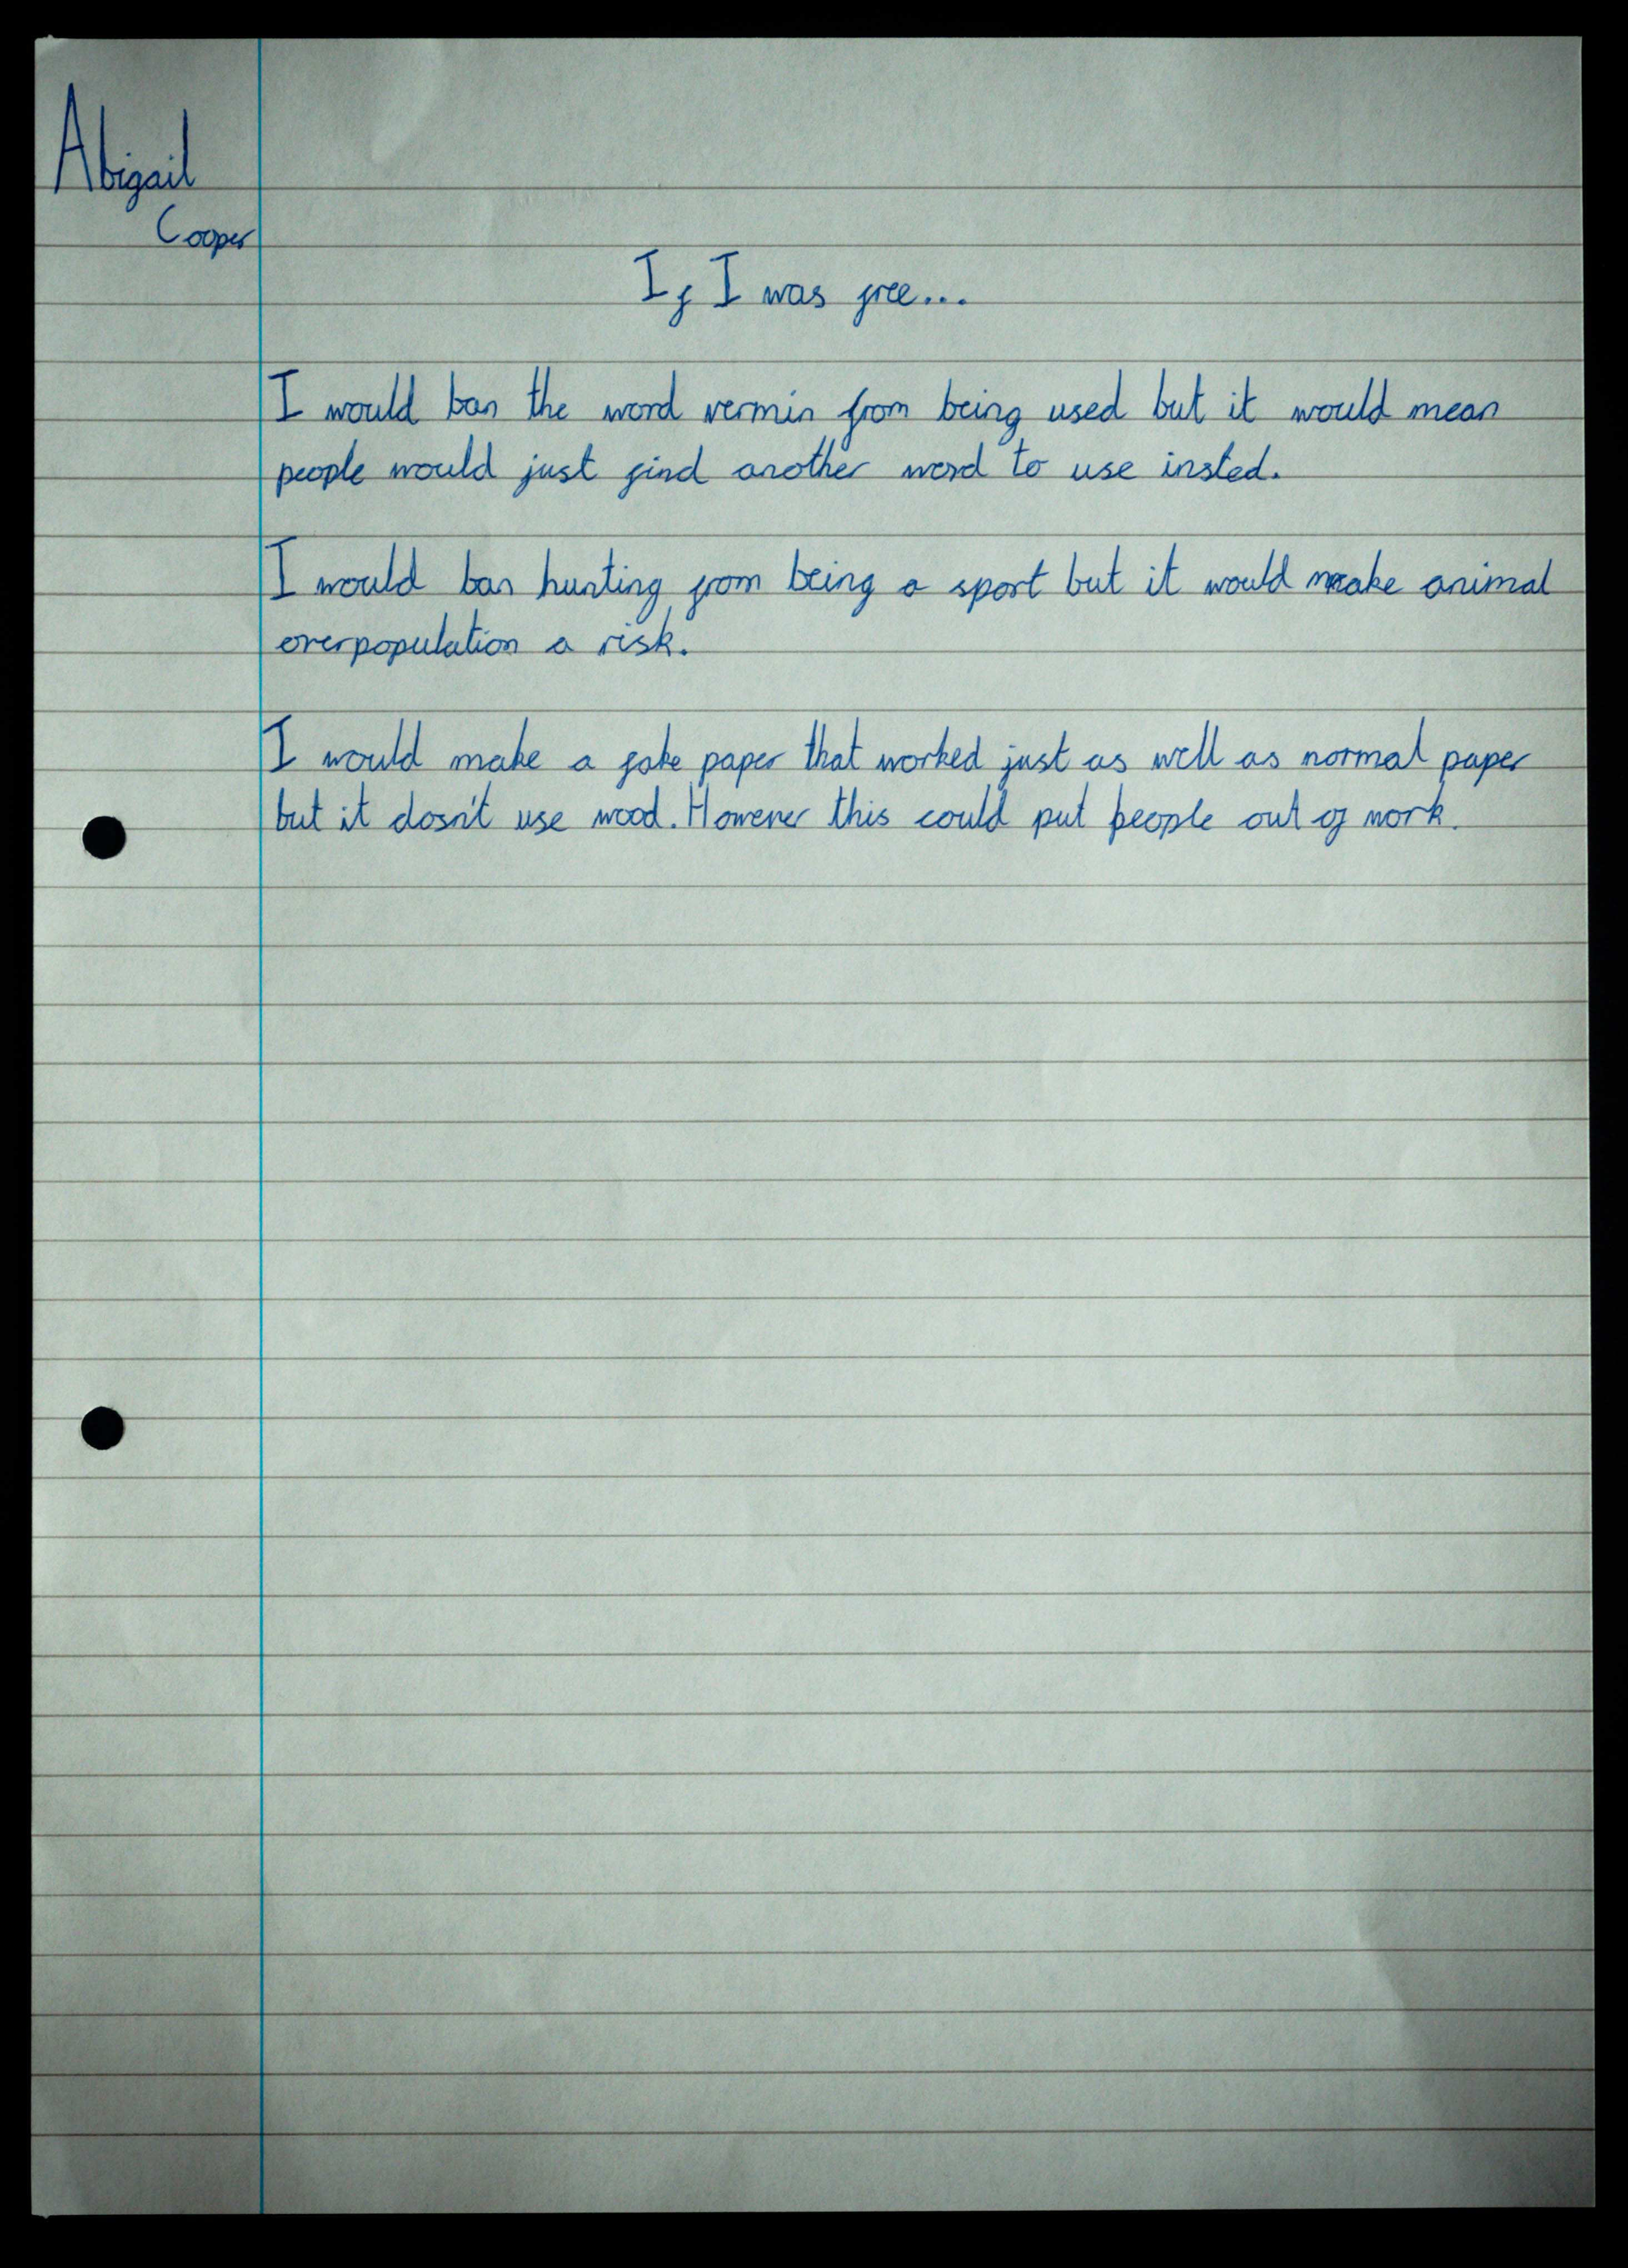 Abigail
Cooper
If I was free...
I would ban the word vermin from being used but it would mean
people would just find another word to use insted.
I would ban hunting from being a sport but it would make animal
overpopulation a risk.
I would make a fake paper that worked just as well as normal paper
but it dosn't use wood. However this could put people out of work.